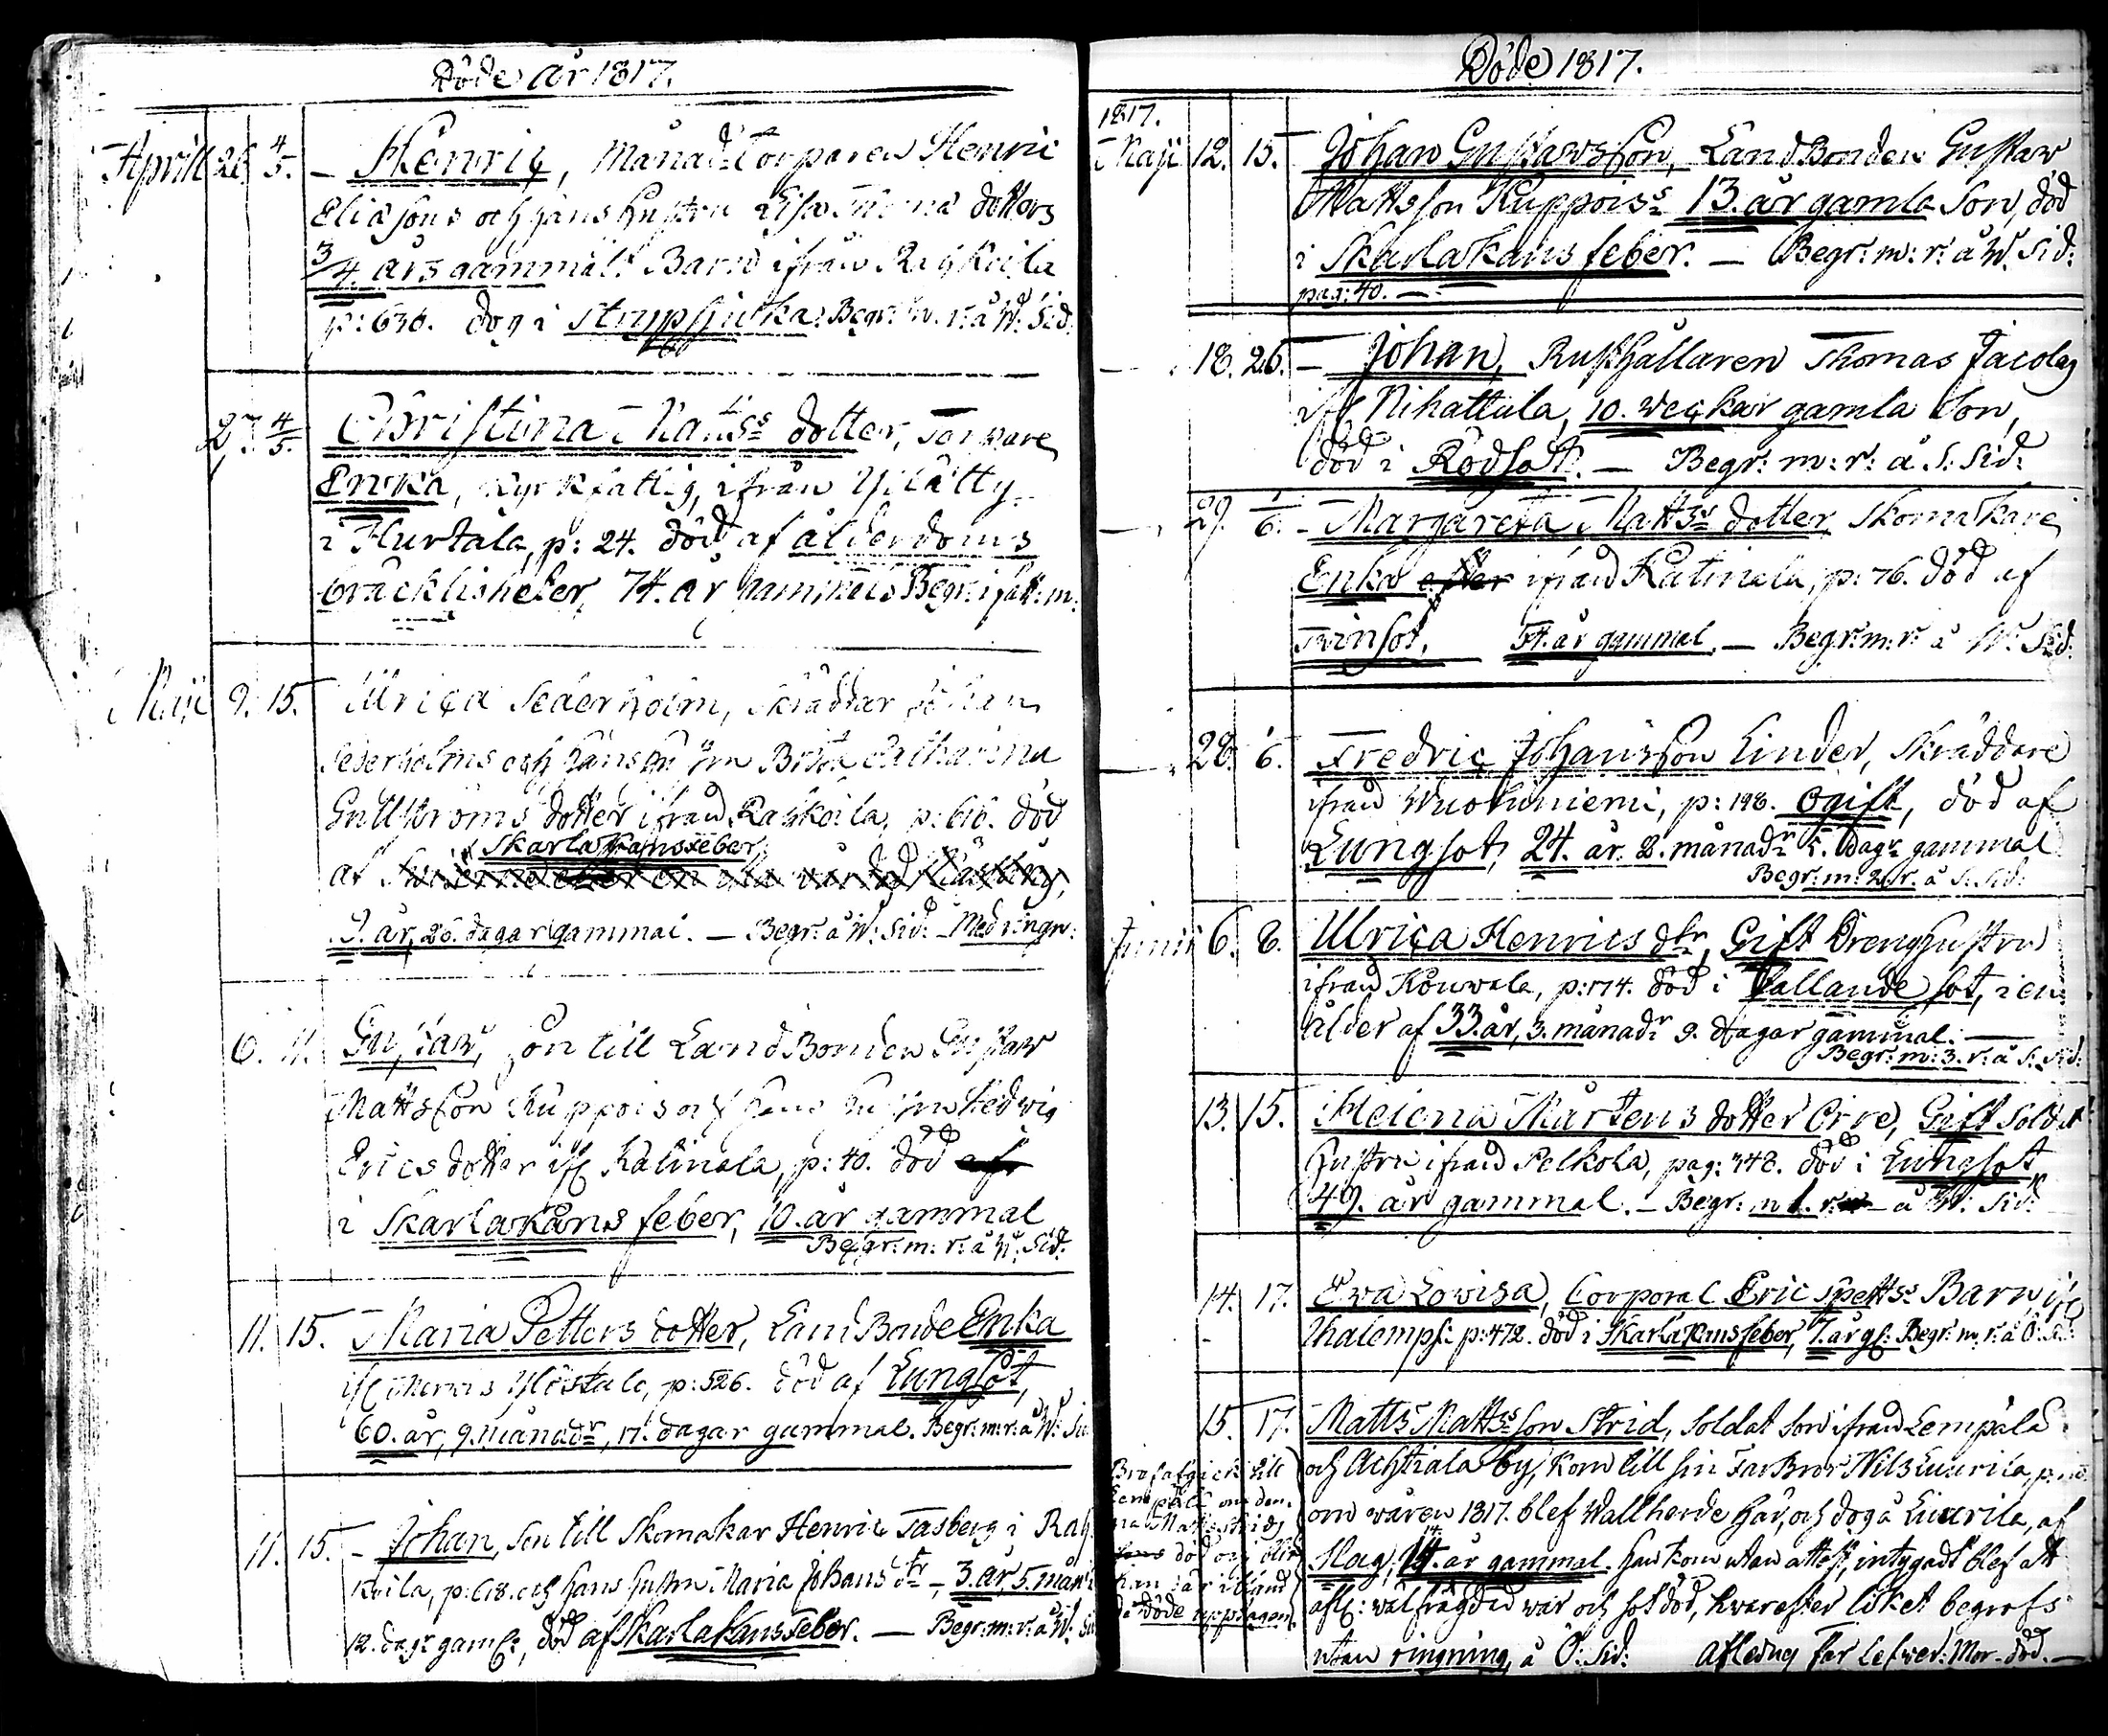 Döde år 1817.
Aprill 26. 4/5. – Henric, Månads Torparen Henric
Eliæ sons och hans hustru Lisa dotters
3/4 års gammalt Barn ifrån Raskoila
p: 636. dog i strypsjuka. Begr: m. r: å W: Sid.
27. 4/5. Christina Matts dotter, Torpare
Enka, kyrkfattig, ifrån Yliätty
i Hurtala, p: 24. död af ålderdoms
bräckligheter, 74. år gammal. Begr.
Maji 9. 15. Ulrica Sederholm, Skräddar Johan
Sederholms och hans hustru Brita Catharina
Gullströms dotter ifrån Raskoila, p: 616. död
af Skarlakansfeber
9. år, 26. dagar gammal. – Begr: å W: Sid: – Med ringn:
6. 11. Gustaw, son till LandBonden Gustaw
Mattsson Kuppois och hans hustru Hedwig
Erics dotter ifr Katinala, p: 40. död
i Skarlakans feber, 10. år gammal
Begr: m: r: å W: Sid:
11. 15. Maria Petters dotter, Land Bonde Enka
ifr p: 526. död af Lungsot,
60. år, 9. månadr, 17. dagar gammal. Begr: m: r: å W: Sid
11. 15. – Johan, son till Skomakar Henric Tasberg i Ras
koila, p: 618. och hans hustru Maria Johans dtr – 3. år, 5. mån
12. dagr gaml:, död af Skarlakansfeber. – Begr: m: r: å W: Sid
Döde 1817.
1817.
Maji 12. 15. Johan Gustawsson, Land Bonden Gustaw
Mattsson Kuppois 13. år gamla Son, död
i Skarlakans feber. – Begr: m: r: å W. Sid:
pag: 40. –
18. 26. – Johan, Rusthållaren Thomas Jacobs
ifr Nihattula, 10. weckor gamla Son,
död i Rödsot. – Begr: m: r: å S: Sid:
29. 1/6. – Margareta Matts dotter Skomakare
Enka ifrån Katinala, p: 76. död af
Twinsot, år gammal. – Begr: m: r: å W: Sid:
28. 6. Fredric Johansson Linder, Skräddare
ifrån Wuohiniemi, p: 198. ogift, död af
Lungsot, 24. år 8. månadr 5. dagr gammal
Begr: m: 2. r. å S: Sid:
Junii 6. 8. Ulrica Henrics dtr, Gift Dreng hustru
ifrån Kouwala, p: 174. död i fallande sot, i en
ålder af 33. år, 3. månadr 9. dagar gammal. –
Begr: m: 3. r: å S: Sid:
13. 15. Helena Mårtens dotter Orre, Gift Soldat
hustru ifrån Pelkola, pag: 348. död i Lungsot
49. år gammal. – Begr: m 1. r: å W: Sid:
14. 17. Ewa Lowisa, Corporal Eric Spetts Barn, ifr
Thalemps: p: 472. död i Skarlakansfeber, 7. år gl: Begr: m. r: å Ö: Sid:
15. 17. Matts Mattsson Strid, Soldat Son ifrån Lempälä
och Achtiala by, kom till sin FarBror Nils Luurila,
om wåren 1817. blef Wallherde här, och dog å Liurila, af
Mag, 14. år gammal. han kom utan attest, intygadt blef att
afl: wäl frägdad war och sot död, hwarefter liket begrofs
utan ringning, å Ö: Sid: Afledng Far lefwer: Mor död. –
Bref afgick till
Lempälä om den
na Matts Strids
död och blir
han där ibland
de döde upptagen.